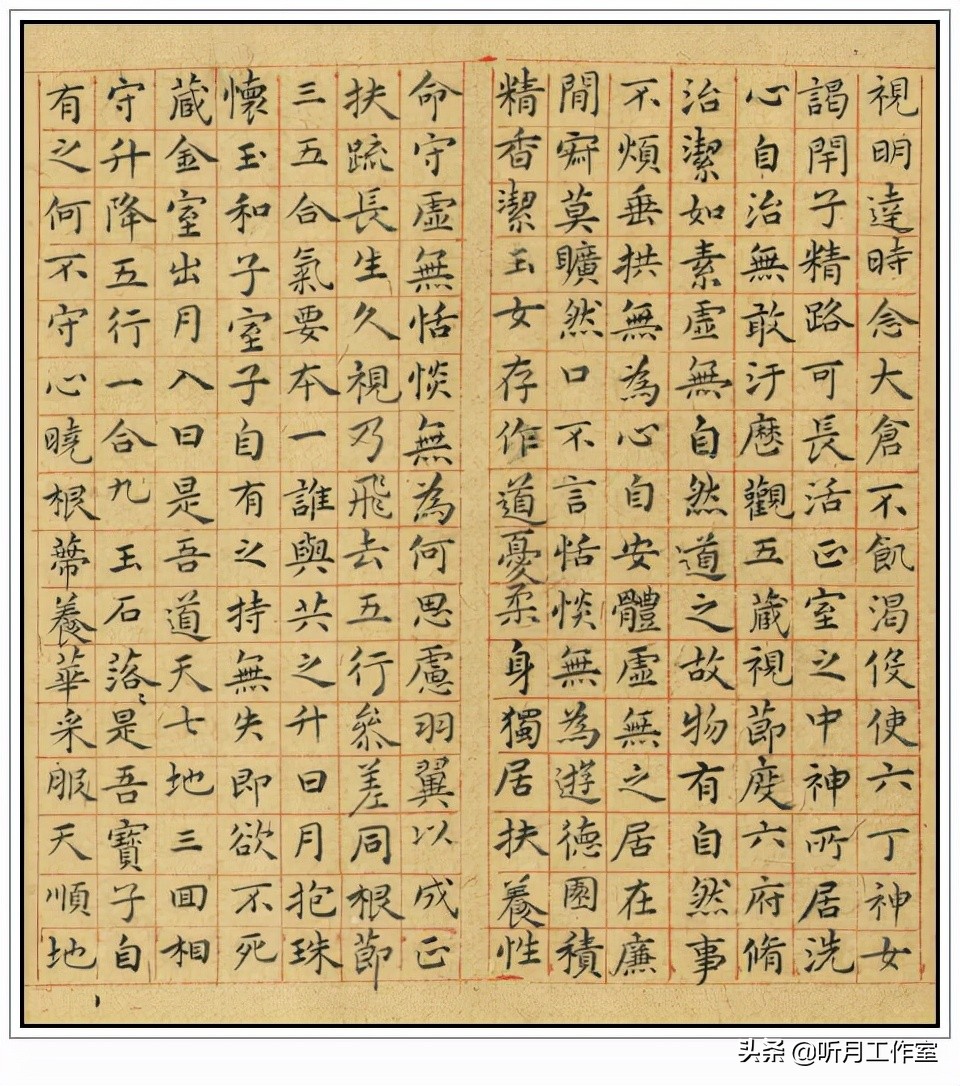 視明達時念大倉不飢渴伇使六丁神女
謁閇子精路可長活正室之中神所居洗
心自治無敢汙厯觀五藏視節度六府脩
治潔如素虛無自然道之故物有自然事
不煩垂拱無為心自安體虛無之居在廉
閒寂莫曠然口不言恬惔無為遊德園積
精香潔玉女存作道憂柔身獨居扶養性
命守虛無恬惔無為何思慮羽翼以成正
扶疏長生久視乃飛去五行參差同根節
三五合氣要本一誰與共之升日月抱珠
懷玉和子室子自有之持無失即欲不死
藏金室出月入日是吾道天七地三回相
守升降五行一合九玉石落〻是吾寶子自
有之何不守心曉根蔕養華采服天順地
头条 @听月工作室